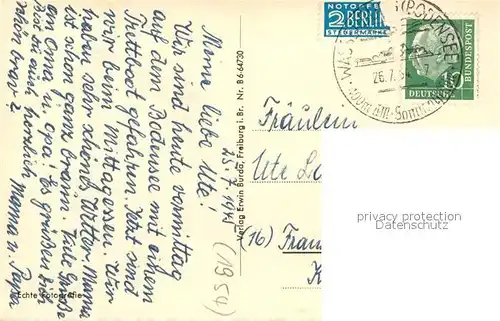 Meine liebe Ute!
Wir sind heute vormittag
auf dem Bodensee mit einem
Trettboot gefahren. Jetzt sind
wir beim Mittagessen. Wir
haben sehr schönes Wetter. Mama
ist schon ganz braun. Viele Grüße
an Oma u. Opa! Es grüßen Dich
herzlich Mama u. Papa
(1954)
Echte Fotografie
Verlag Erwin Burda, Freiburg i. Br. Nr. B 6-64730
NOTOPFER
2 BERLIN
STEUERMARKE
(BODENSEE)
26.7.
DEUTSCHE
BUNDESPOST
10
Fräulein
Ute
(16)
privacy protection
Datenschutz